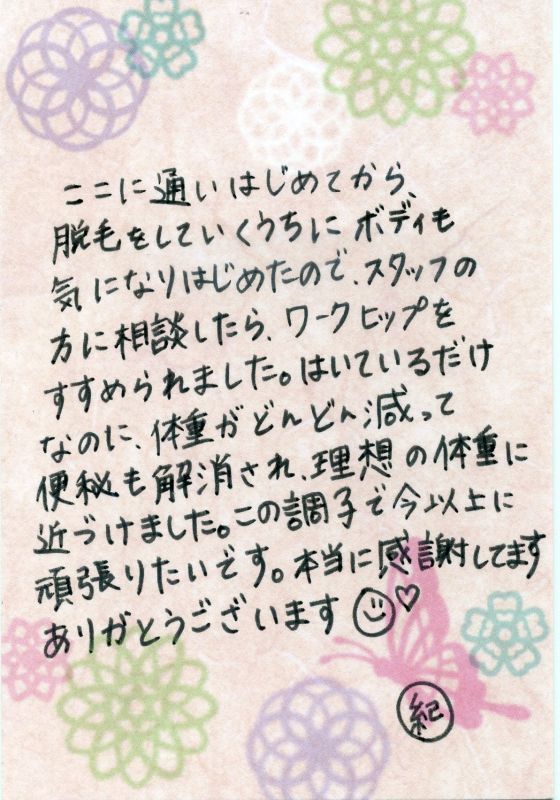 ここに通いはじめてから、
脱毛をしていくうちに ボディも
気になりはじめたので、スタッフの
方に相談したら、ワークヒップを
すすめられました。はいているだけ
なのに、体重がどんどん減って
便秘も解消され、理想の体重に
近づけました。この調子で今以上に
頑張りたいです。本当に感謝してます
ありがとうございます
紀